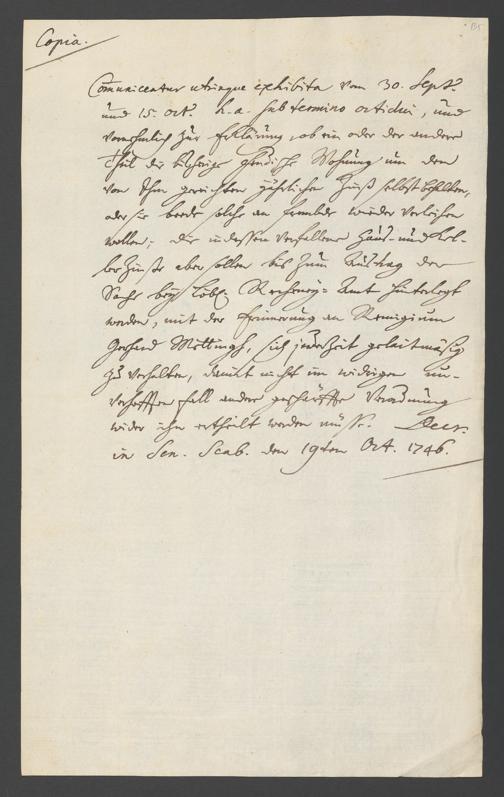 Copia.
135
Communicentur utrinque exhibita vom 30. Sept.
und 15. Oct. h. a. sub termino octidui, und
vornehmlich zur Erklärung, ob ein oder der andere
Theil die bißherige Wohnung um den
von Ihm jährlichen Zinß selbst behalten,
oder sie beede solche an Fremde wieder verleihen
wollen; die indessen verfallene Hauß- und Kel-
ler Zinße aber sollen bis zum Austrag der
Sache bey Löbl. Recheney-Amt hinterlegt
werden, mit der Erinnerung an Remigium
Gerhard Möllingh, sich jederzeit geleitmäsig
zu verhalten, damit nicht im widrigen un-
verhofften Fall andere geschärffte Verordnung
wider ihn ertheilt werden müsse. Decr.
in Sen. Scab. den 19ten Oct. 1746.